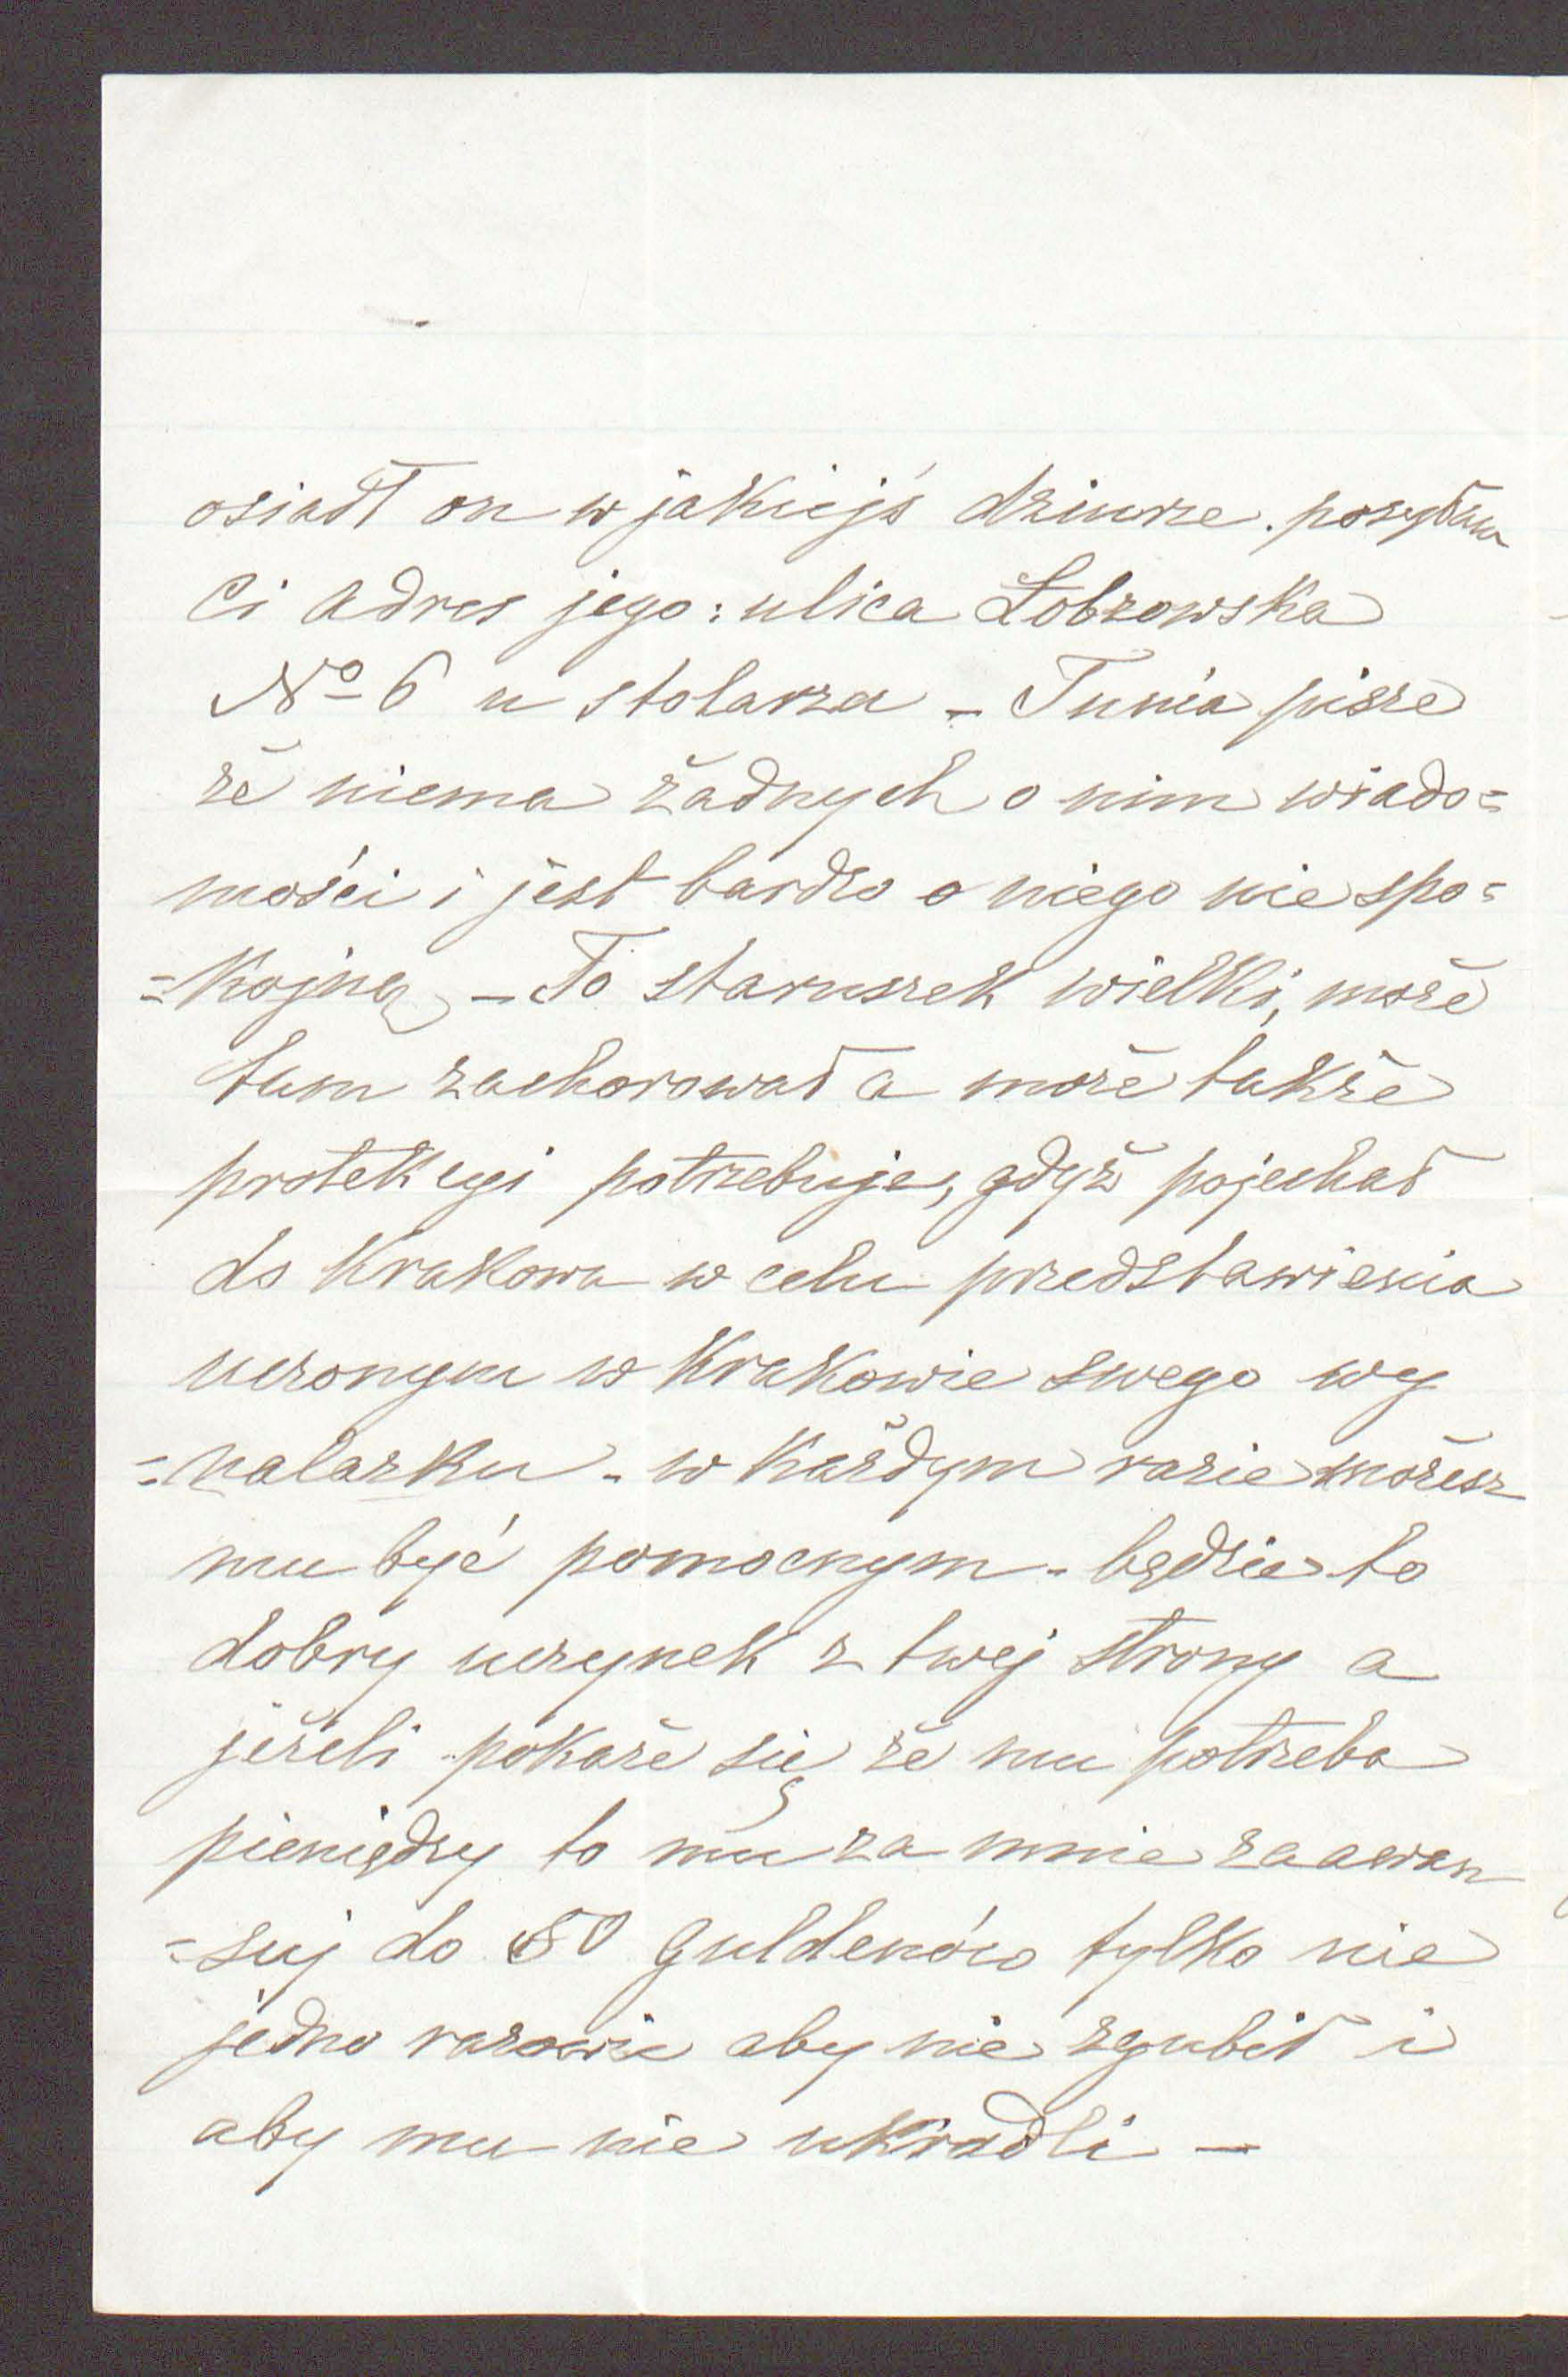 osiadł on w jakiejś dziurze. posyłam
Ci adres jego: ulica Łobzowska
No 6 u stolarza – Tunia pisze
że niema żadnych o nim wiado=
mości i jest bardzo o niego nie spo=
=kojną – To staruszek wielki, może
tam zachorował a może także
protekcyi potrzebuje, gdyż pojechał
do Krakowa w celu przedstawienia
uczonym w Krakowie swego wy
=nalazku – w każdym razie możesz
mu być pomocnym – będzie to
dobry uczynek z twej strony a
jeżeli pokaże się że mu potrzeba
pieniędzy to mu za mnie zaawan
=suj do 50 guldenów tylko nie
jedno razowie aby nie zgubił i
aby mu nie ukradli –